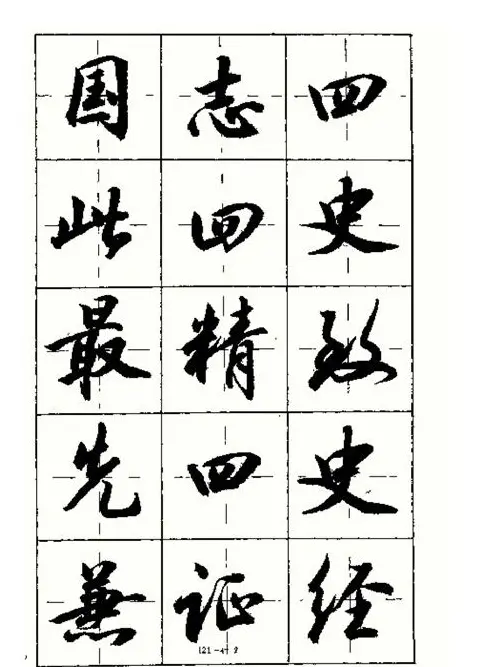 国志四
此四史
最精致
先四史
兼证经